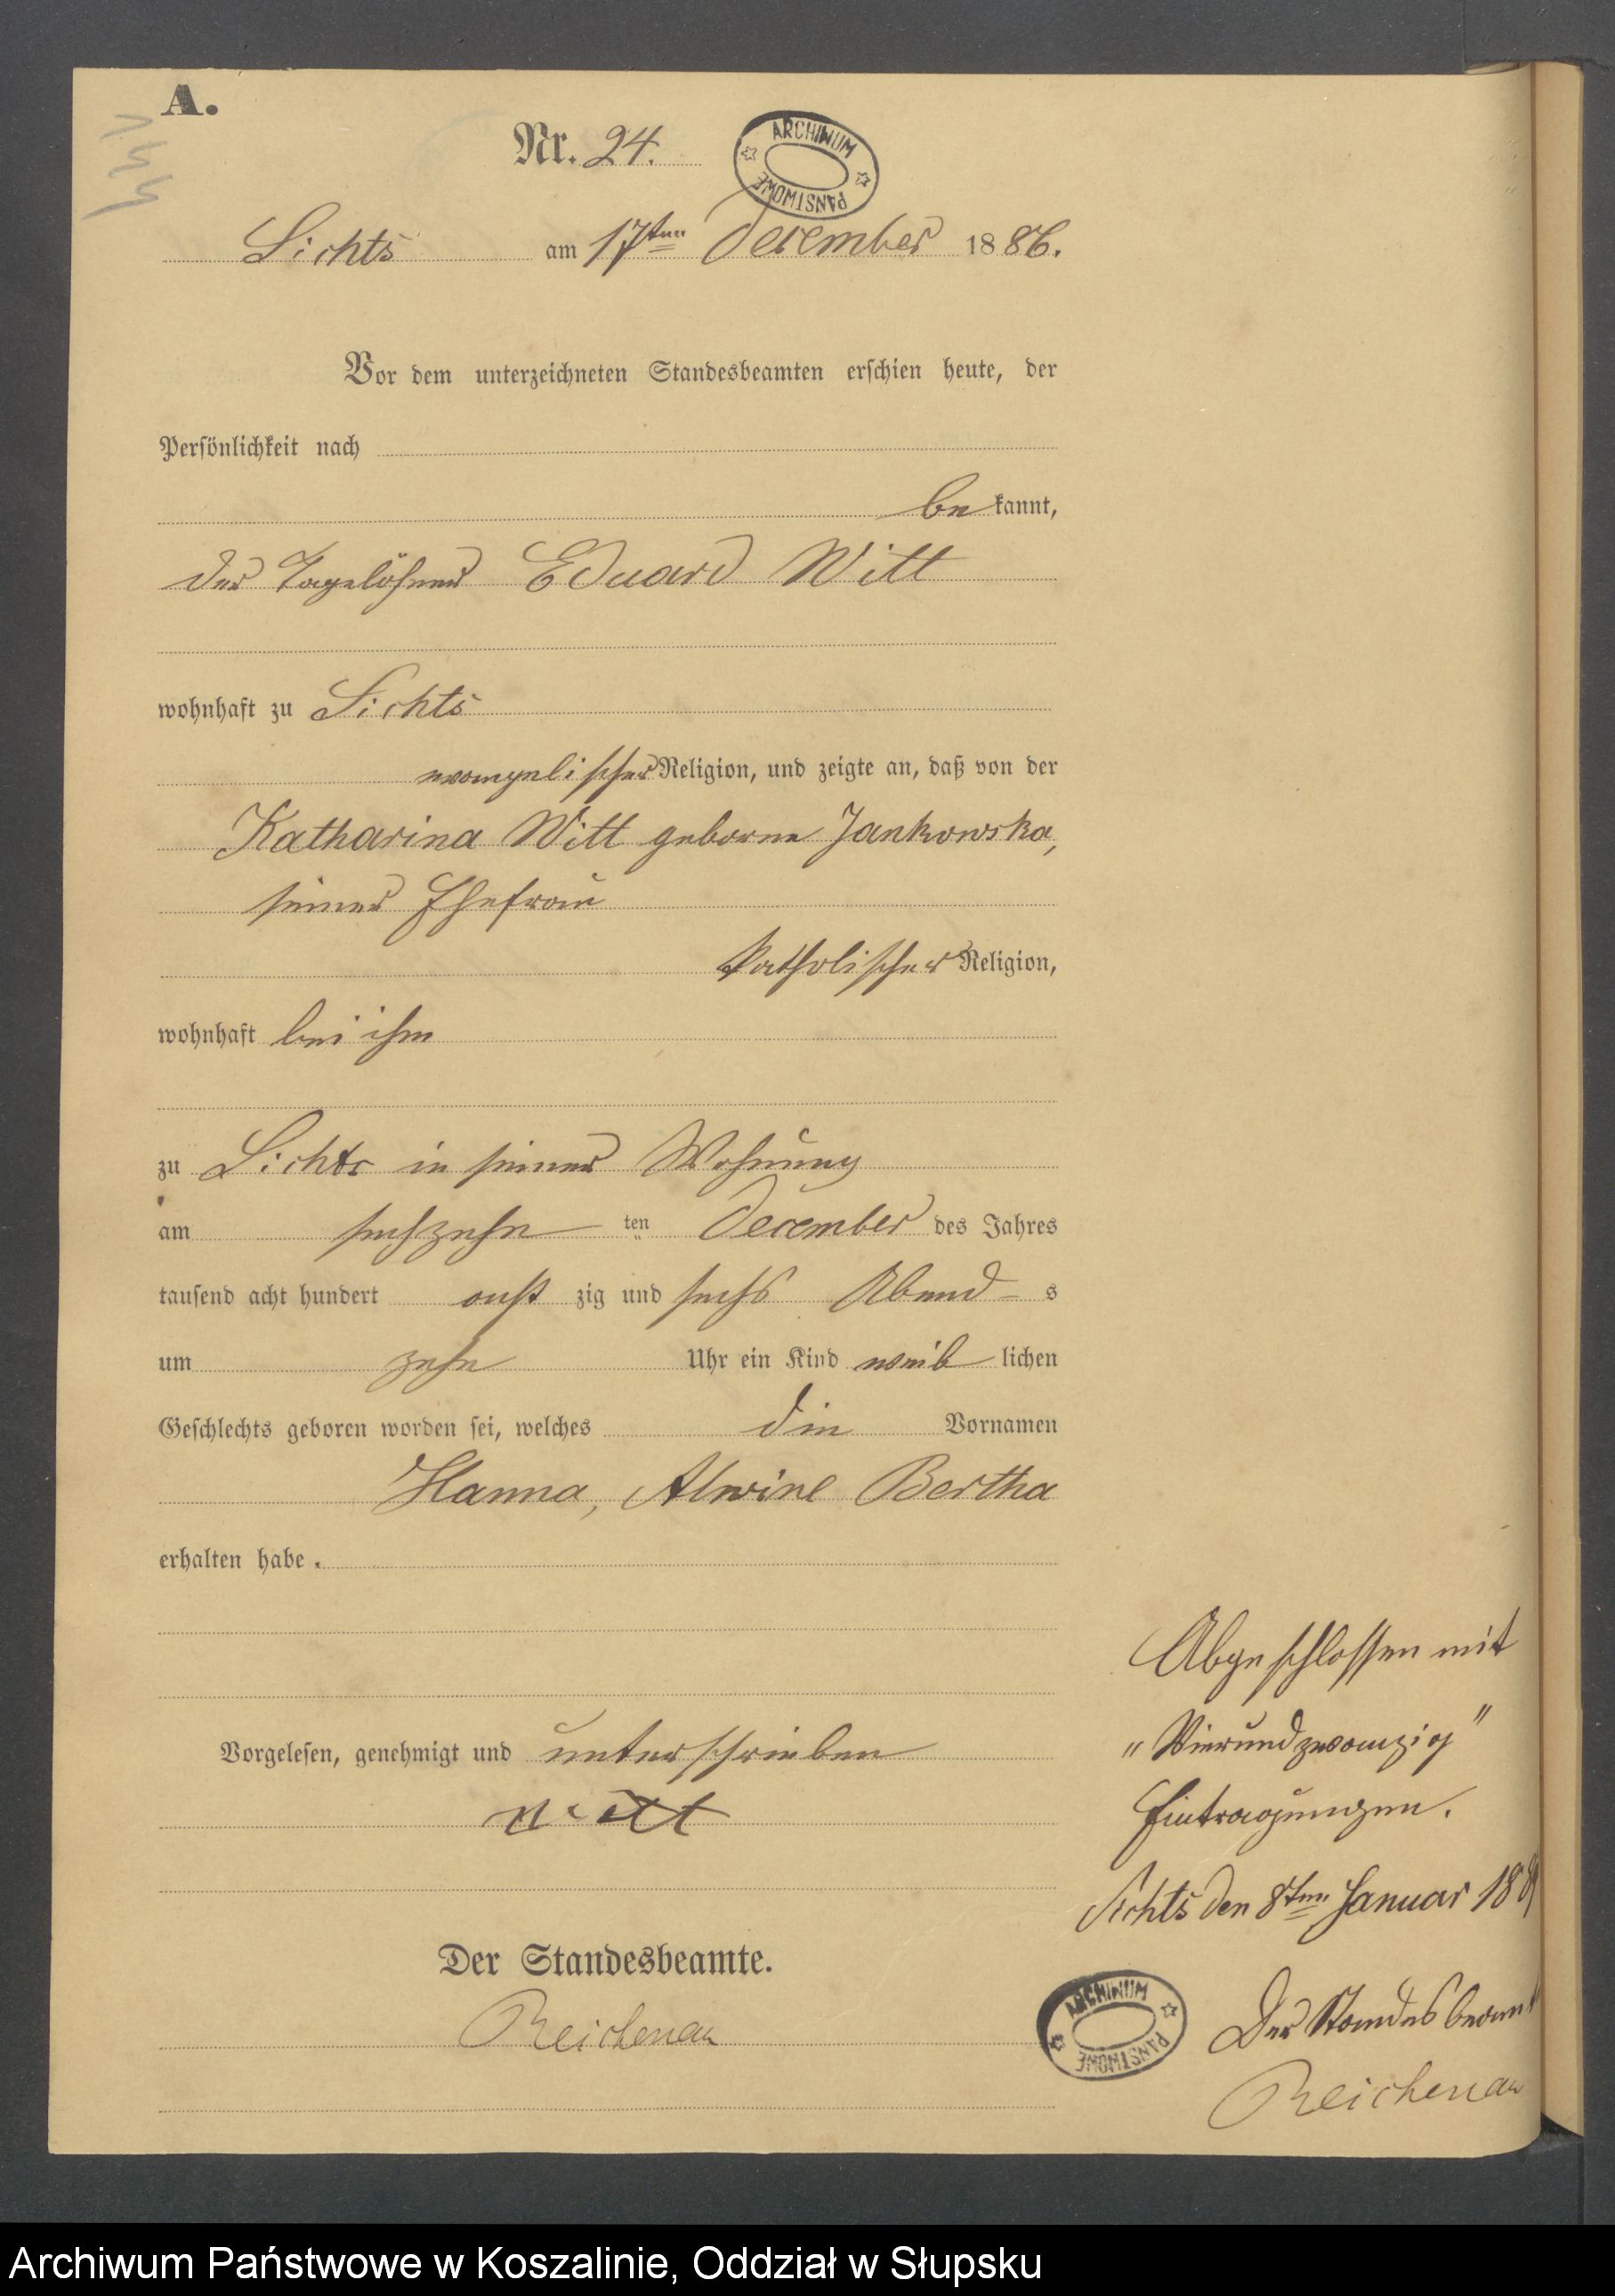 A.
Nr. 24.
ARCHIWUM PAŃSTWOWE
Sichts am 17ten December 1886.
Vor dem unterzeichneten Standesbeamten erschien heute, der
Persönlichkeit nach
bekannt,
der Tagelöhner Eduard Witt
wohnhaft zu Sichts
evangelischer Religion, und zeigte an, daß von der
Katharina Witt geborne Jankowska,
seiner Ehefrau
katholischer Religion,
wohnhaft bei ihm
zu Sichts in seiner Wohnung
am sechzehn ten December des Jahres
tausend acht hundert acht zig und sechs Abend s
um zehn Uhr ein Kind weib lichen
Geschlechts geboren worden sei, welches die Vornamen
Hanna, Alwine Bertha
erhalten habe.
Vorgelesen, genehmigt und unterschrieben
Witt
Der Standesbeamte.
Reichenau
Abgeschlossen mit
"Vierundzwanzig"
Eintragungen.
Sichts den 8ten Januar 188
Der Standesbeamt
Reichenau
ARCHIWUM PAŃSTWOWE
Archiwum Państwowe w Koszalinie, Oddział w Słupsku